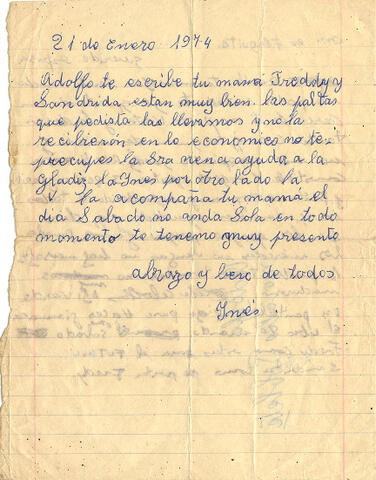 21 de Enero 1974
Adolfo te escribe tu mamá Freddy y
Sandrida estan muy bien las paltas
que pedista las llevamos y no la
recibieron en lo economico no te
precupes la Sra nena ayuda a la
Gladis la Ines por otro lado la
la acompaña tu mamá el
dia Sabado no anda Sola en todo
momento te tenemo muy presente
abrazo y beso de todos
Inés.